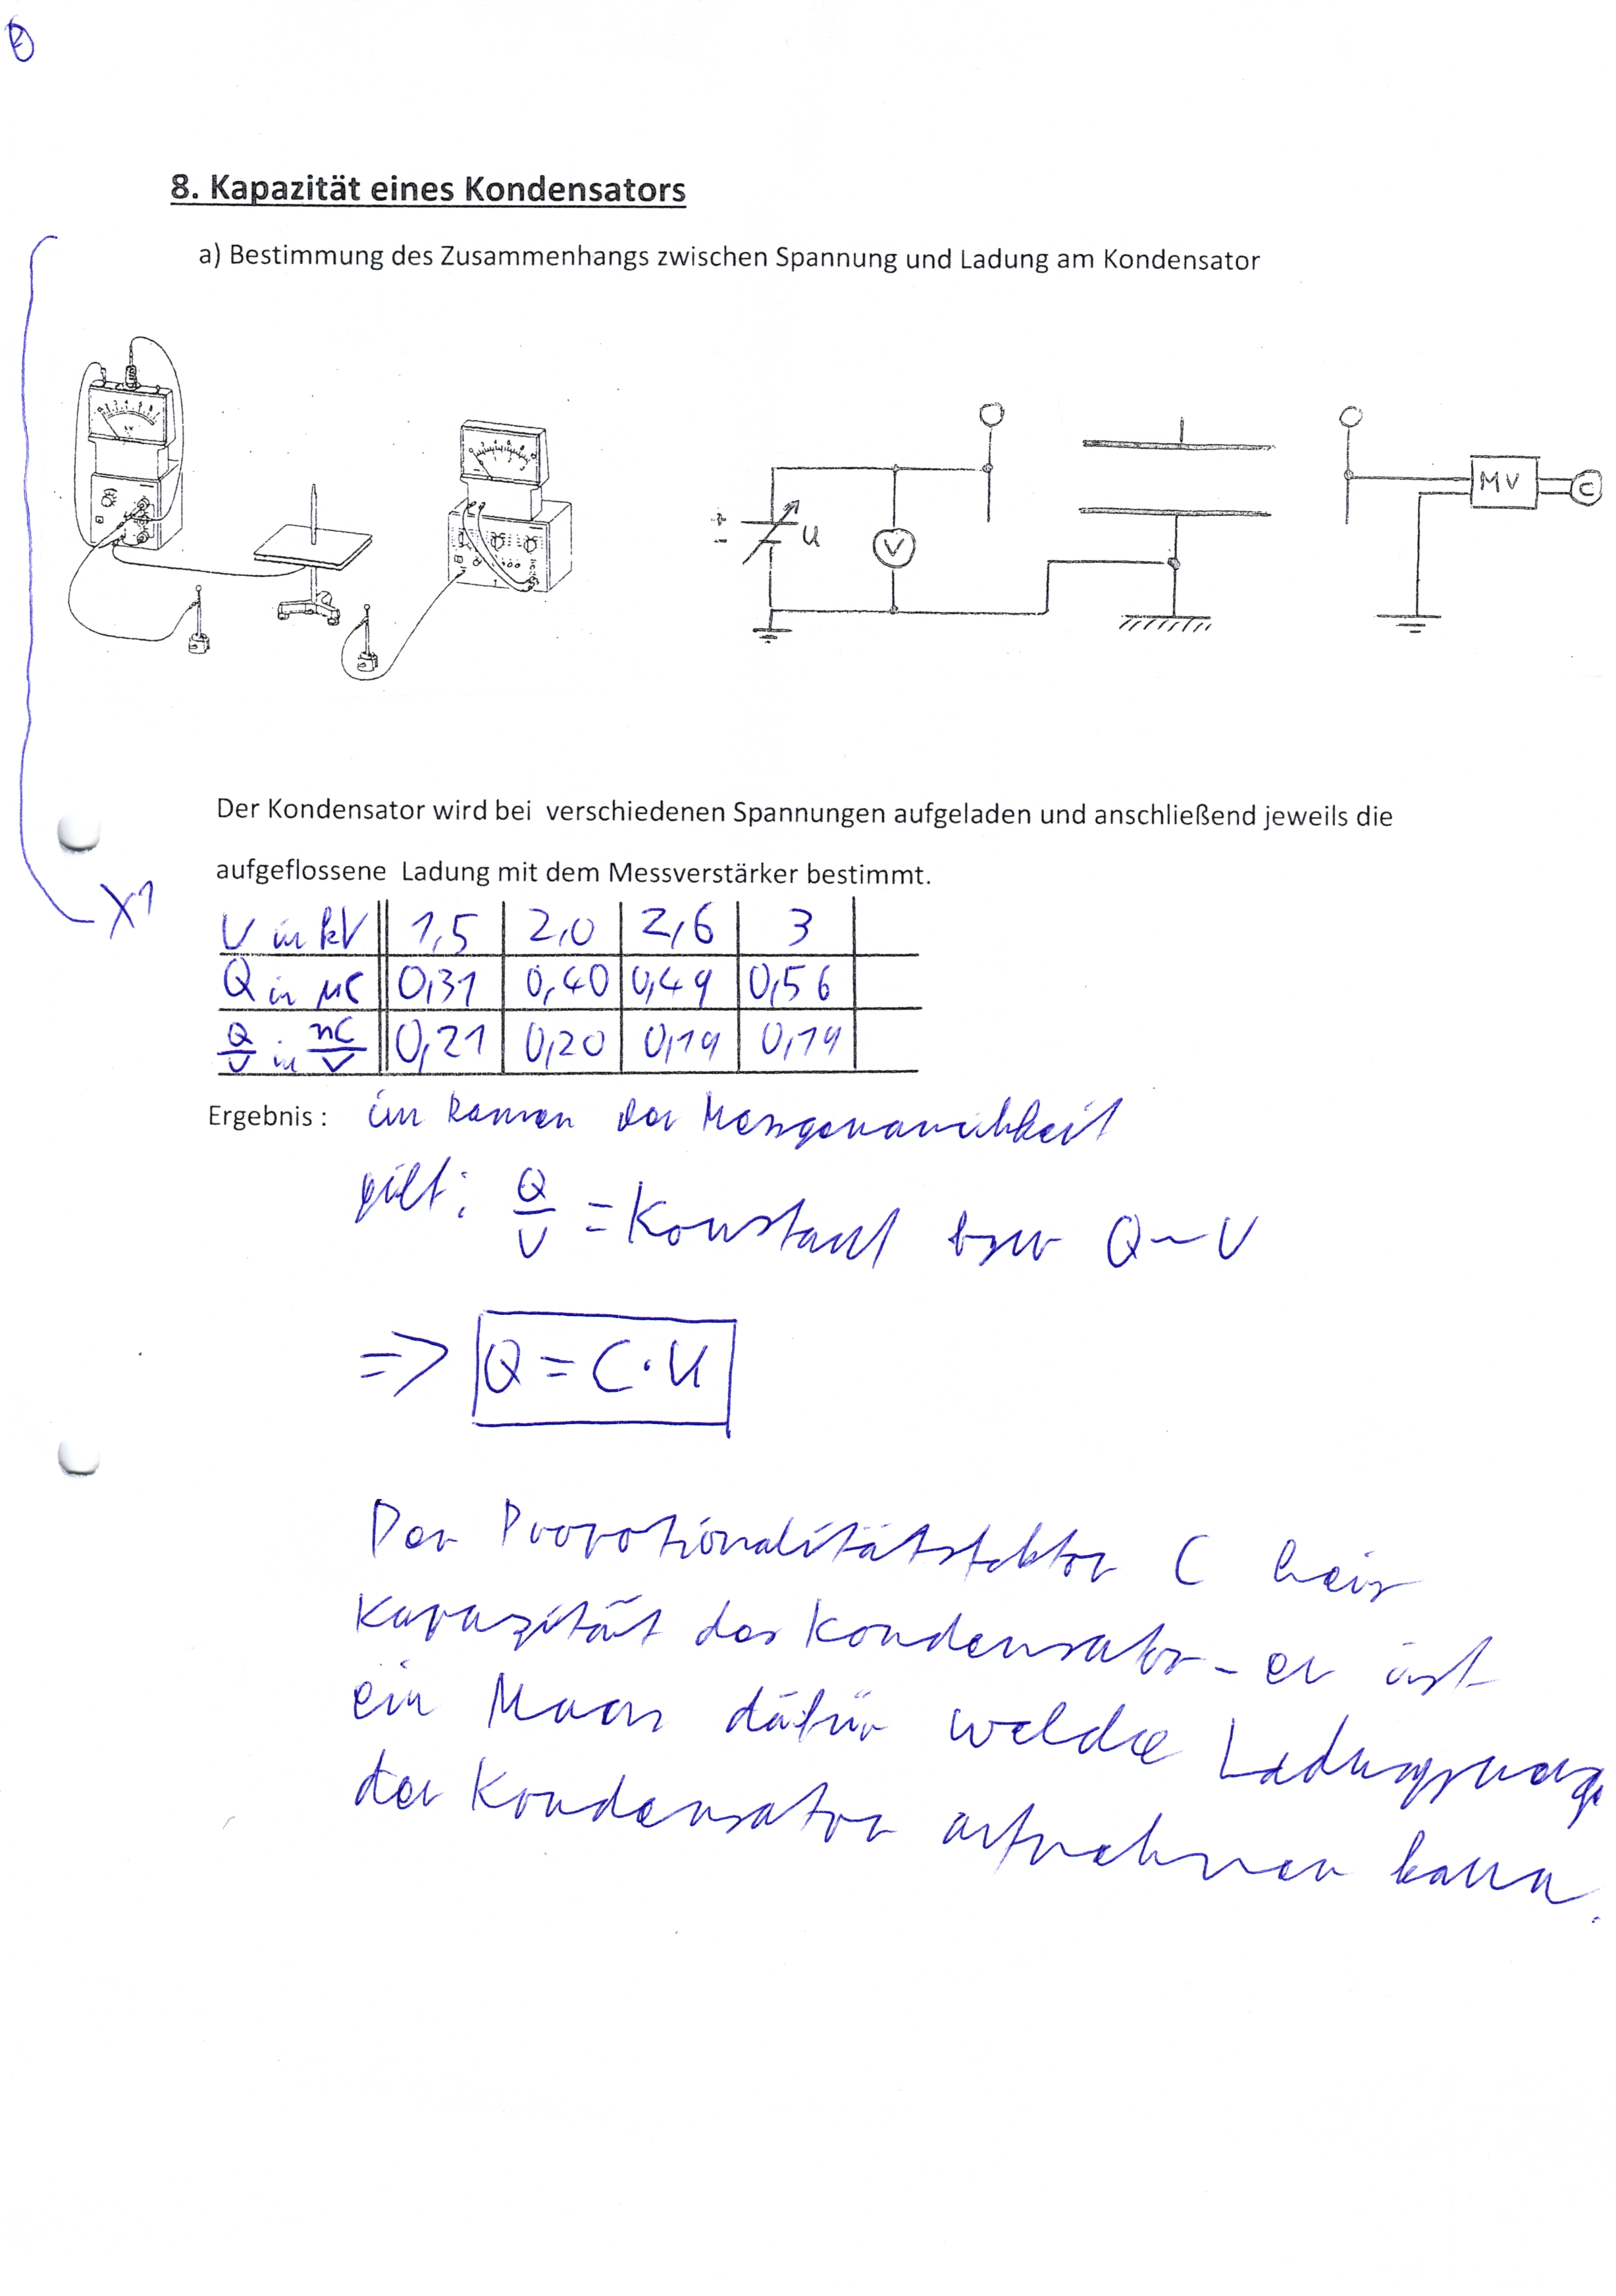 8. Kapazität eines Kondensators
a) Bestimmung des Zusammenhangs zwischen Spannung und Ladung am Kondensator
+
-
U
V
MV
C
Der Kondensator wird bei verschiedenen Spannungen aufgeladen und anschließend jeweils die
aufgeflossene Ladung mit dem Messverstärker bestimmt.
X1
U in kV 1,5 2,0 2,6 3
Q in µC 0,31 0,40 0,49 0,56
Q/U in nC/V 0,21 0,20 0,19 0,19
Ergebnis : im Ramen der Messgenauichkeit
gilt: Q/U = Konstant bzw Q ~ U
=> Q = C · U
Der Proportionalitätsfaktor C heis
Kapazität des Kondensator - er ist
ein Maas dafür welche Ladungsmenge
der Kondensator aufnehmen kann.